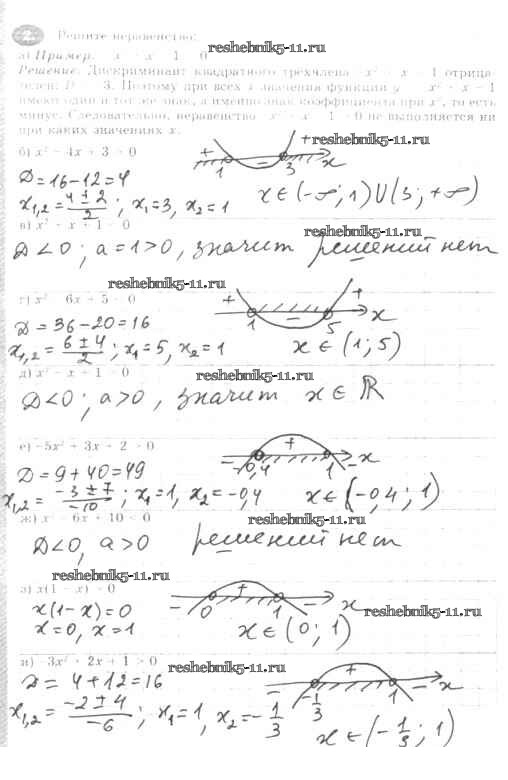 2. Решите неравенство:
reshebnik5-11.ru
а) Пример. x x 1 0
Решение. Дискриминант квадратного трехчлена x² x 1 отрица-
телен: D 3. Поэтому при всех x значения функции y x² x 1
имеют один и тот же знак, а именно знак коэффициента при x², то есть
минус. Следовательно, неравенство x² x 1 0 не выполняется ни
при каких значениях x.
reshebnik5-11.ru
б) x² 4x + 3 0
+ 1 − 3 + x
D = 16 − 12 = 4
x1,2 = (4 ± 2)/2 ; x1 = 3, x2 = 1 x ∈ (−∞; 1) ∪ (3; +∞)
в) x² x 1 0
reshebnik5-11.ru
D < 0 ; a = 1 > 0, значит решений нет
reshebnik5-11.ru
г) x² 6x + 5 0
+ 1 − 5 + x
D = 36 − 20 = 16
x1,2 = (6 ± 4)/2 ; x1 = 5, x2 = 1 x ∈ (1; 5)
д) x² x + 1 0
reshebnik5-11.ru
D < 0 ; a > 0, значит x ∈ ℝ
е) −5x² + 3x + 2 > 0
− −0,4 + 1 − x
D = 9 + 40 = 49
x1,2 = (−3 ± 7)/−10 ; x1 = 1, x2 = −0,4 x ∈ (−0,4; 1)
ж) x² 6x + 10 < 0
reshebnik5-11.ru
D < 0, a > 0 решений нет
reshebnik5-11.ru
з) x(1 x) 0
− 0 + 1 − x
reshebnik5-11.ru
x(1 − x) = 0
x = 0, x = 1 x ∈ (0; 1)
и) 3x² 2x + 1 > 0
reshebnik5-11.ru
− −1/3 + 1 − x
D = 4 + 12 = 16
x1,2 = (−2 ± 4)/−6 ; x1 = 1, x2 = −1/3 x ∈ (−1/3; 1)